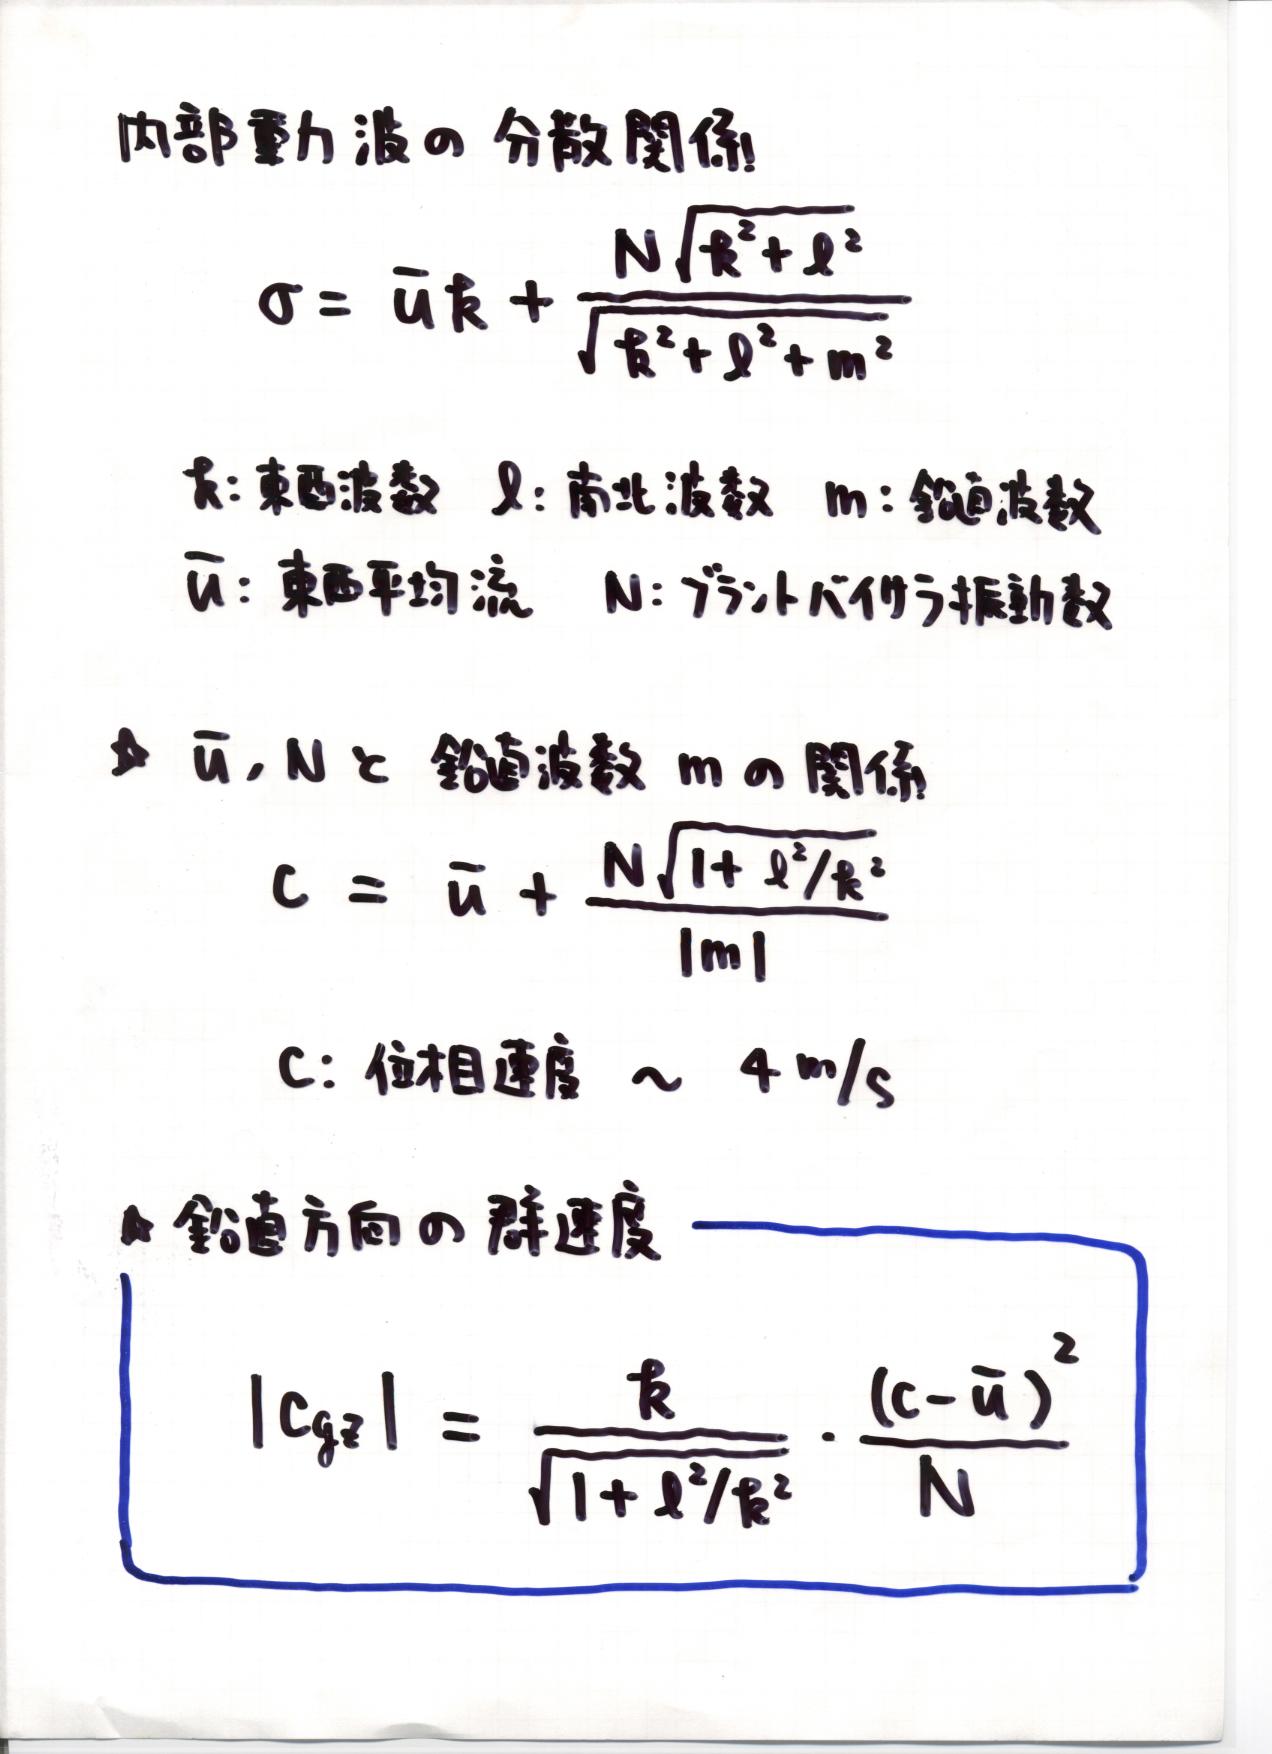 内部重力波の分散関係
σ = ūk + N√(k²+l²) / √(k²+l²+m²)
k: 東西波数 l: 南北波数 m: 鉛直波数
ū: 東西平均流 N: ブラントバイサラ振動数
☆ ū, N と 鉛直波数 m の関係
C = ū + N√(1+l²/k²) / |m|
C: 位相速度 ~ 4 m/s
☆ 鉛直方向の群速度
|Cgz| = k / √(1+l²/k²) · (C-ū)² / N